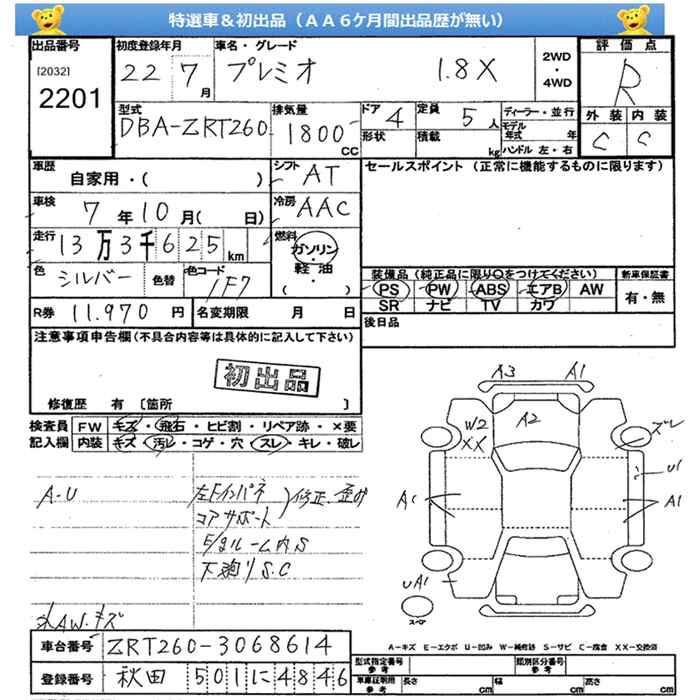 特選車＆初出品（ＡＡ６ケ月間出品歴が無い）
出品番号 [2032] 2201
初度登録年月 22 7月
車名・グレード プレミオ 1.8X
2WD・4WD
評価点 R
外装 内装 C C
型式 DBA-ZRT260
排気量 1800 CC
ドア 4 形状
定員 5人 積載 kg
ディーラー・並行
モデル年式 年
ハンドル 左・右
車歴 自家用・( )
シフト AT
セールスポイント（正常に機能するものに限ります）
車検 7年10月( 日)
冷房 AAC
走行 13万3千625km
燃料 ガソリン・軽油・( )
色 シルバー 色替 色コード 1F7
装備品（純正品に限り○をつけてください）
新車保証書
PS PW ABS エアB AW
有・無
SR ナビ TV カワ
R券 11.970円 名変期限 月 日
後日品
注意事項申告欄（不具合内容等は具体的に記入して下さい）
初出品
修復歴 有〔箇所 〕
検査員記入欄
FW キズ・飛石・ヒビ割・リペア跡・×要
内装 キズ・汚レ・コゲ・穴・スレ・キレ・破レ
A3 A1
W2 XX A2 ズレ
U1
A1 A1
UA1
スペア
A-U
左Fインパネ
コアサポート
修正、歪み
ルーム内S
下廻りS.C
AW.キズ
A-キズ E-エクボ U-凹み W-補修跡 S-サビ C-腐食 XX-交換済
車台番号 ZRT260-3068614
登録番号 秋田 501に4846
型式指定番号 参考 類別区分番号 参考
車庫証明用 参考 長さ cm 幅 cm 高さ cm